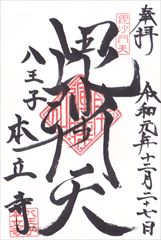 奉拝
令和元年十二月二十七日
毘沙門天
毘沙門天
八王子
本立寺